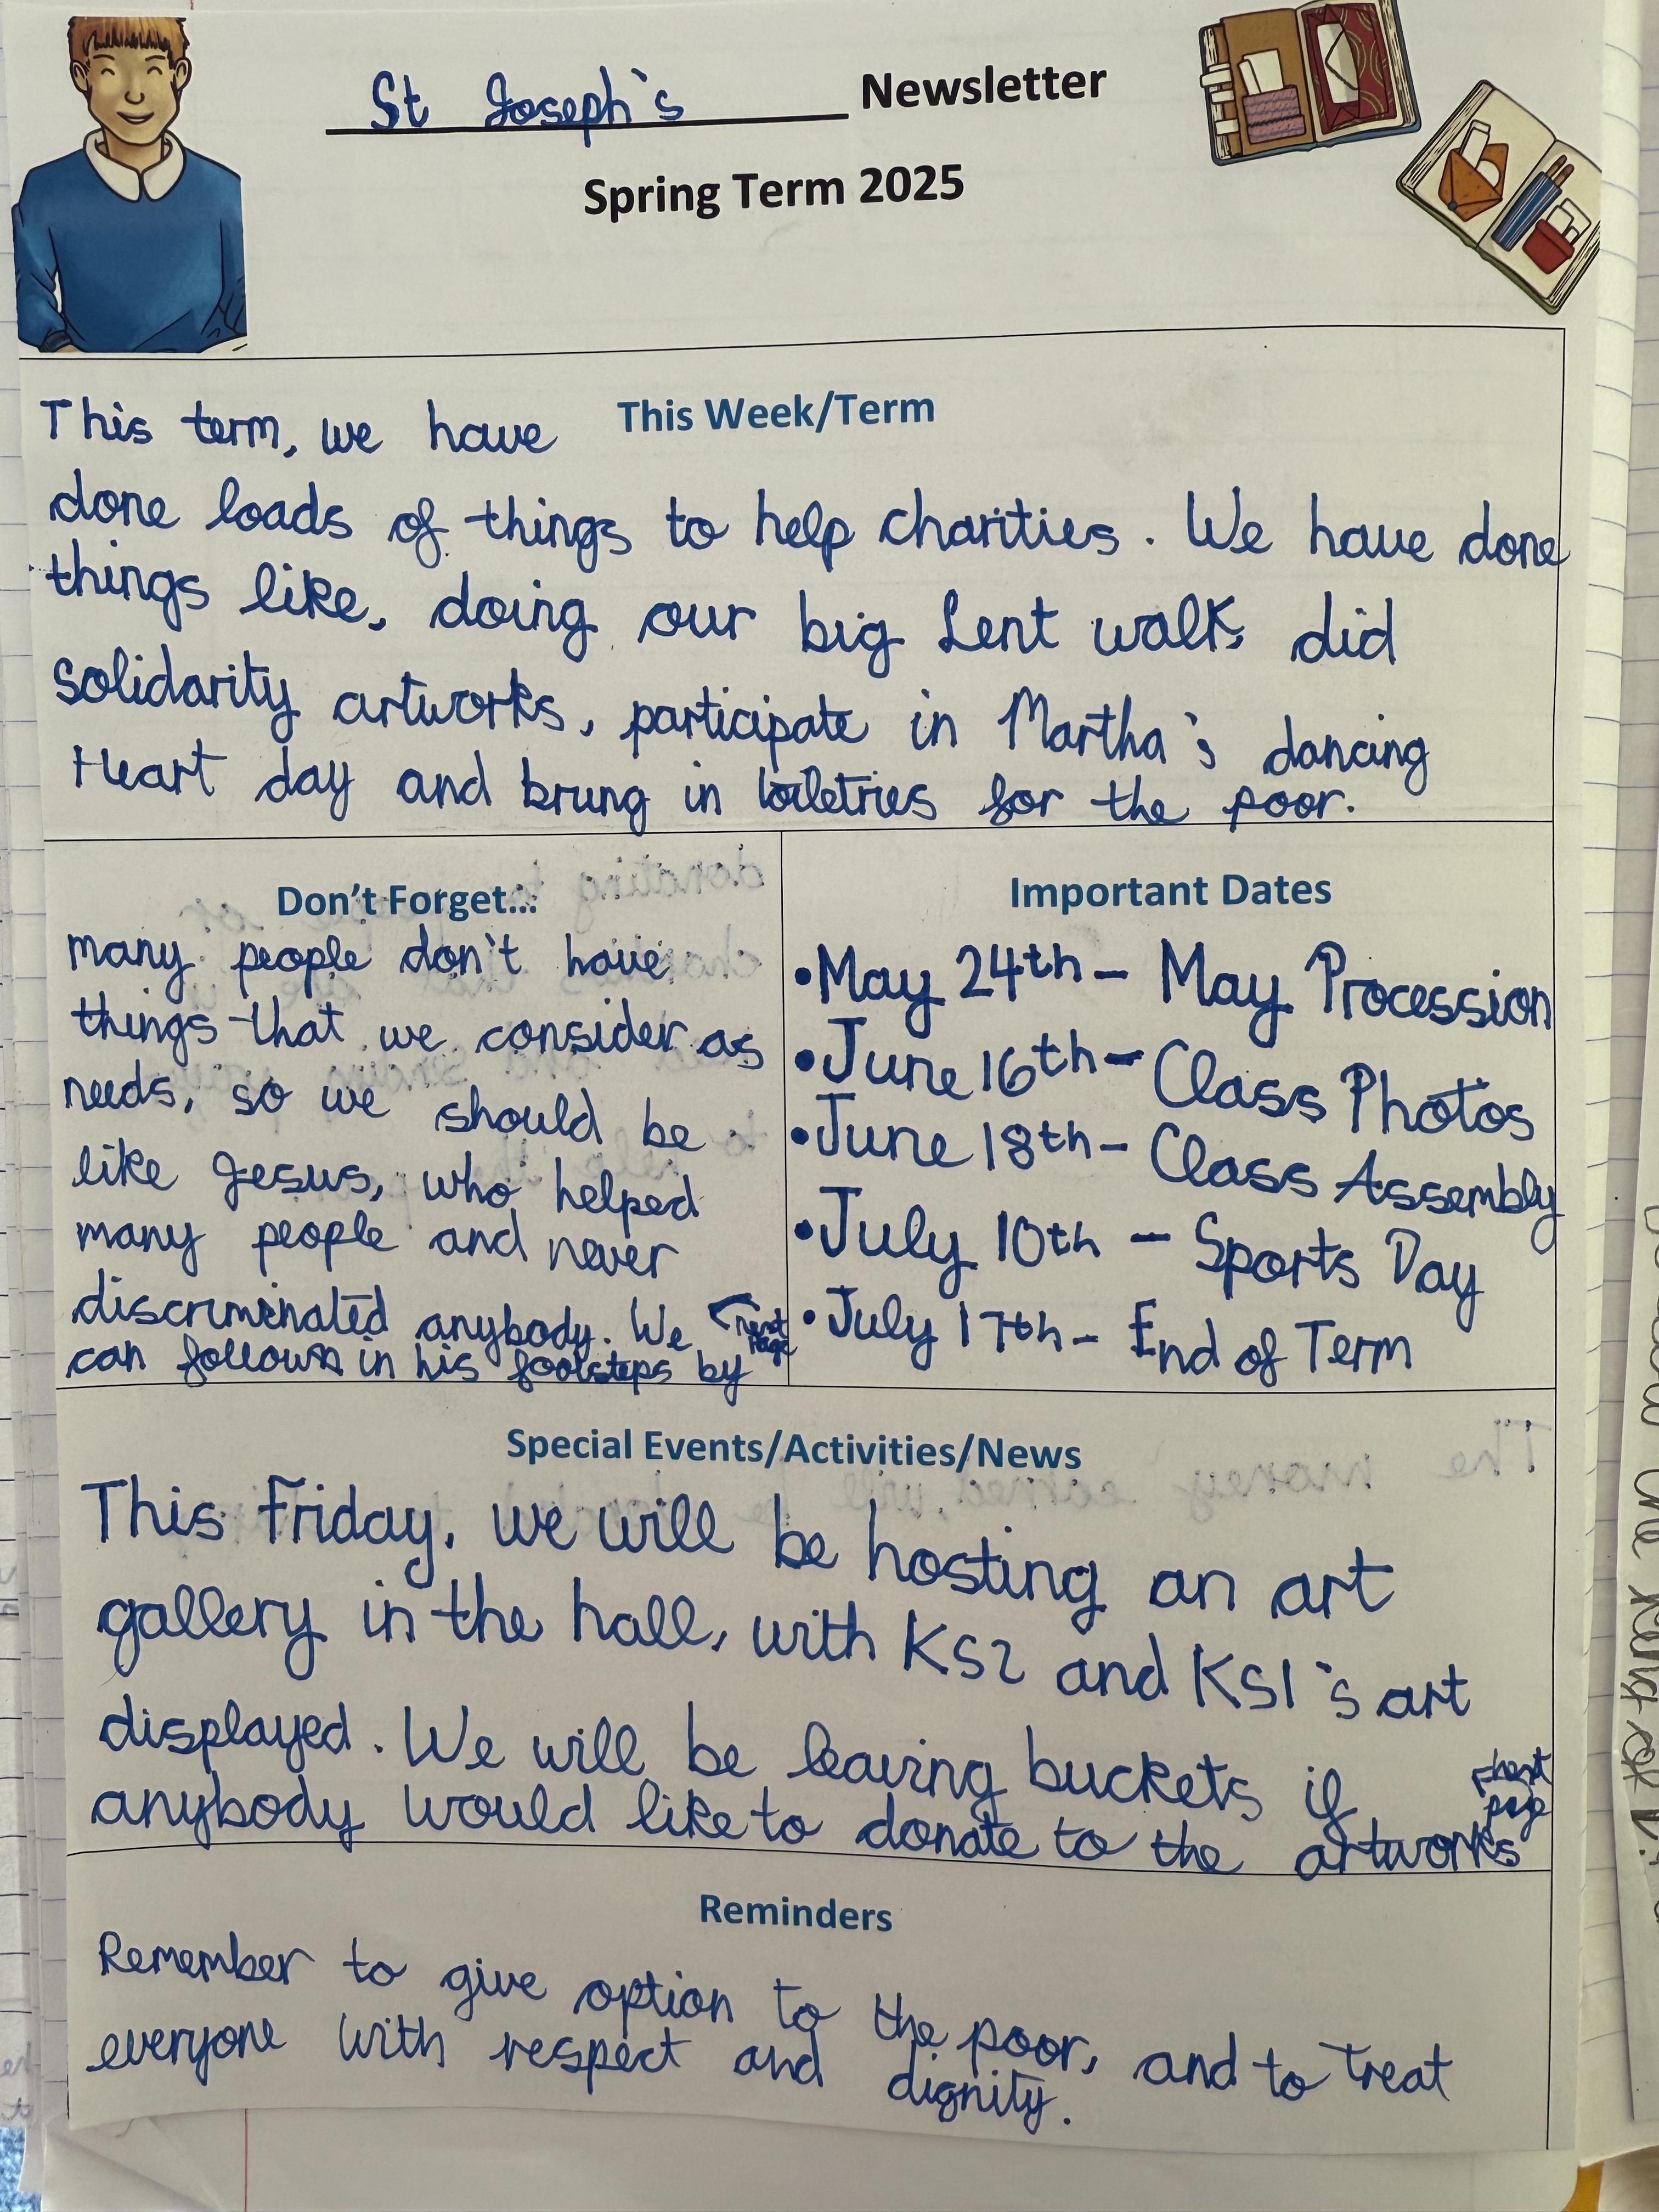 St Joseph's Newsletter
Spring Term 2025
This Week/Term
This term, we have
done loads of things to help charities. We have done
things like, doing our big Lent walk, did
solidarity artworks, participate in Martha's dancing
Heart day and brung in toiletries for the poor.
Don't Forget...
many people don't have
things that we consider as
needs, so we should be
like Jesus, who helped
many people and never
discriminated anybody. We
can follow in his footsteps by
next
Page
Important Dates
•May 24th - May Procession
•June 16th - Class Photos
•June 18th - Class Assembly
•July 10th - Sports Day
•July 17th - End of Term
Special Events/Activities/News
This Friday, we will be hosting an art
gallery in the hall, with KS2 and KS1's art
displayed. We will be leaving buckets if
anybody would like to donate to the artworks
next
page
Reminders
Remember to give option to the poor, and to treat
everyone with respect and dignity.